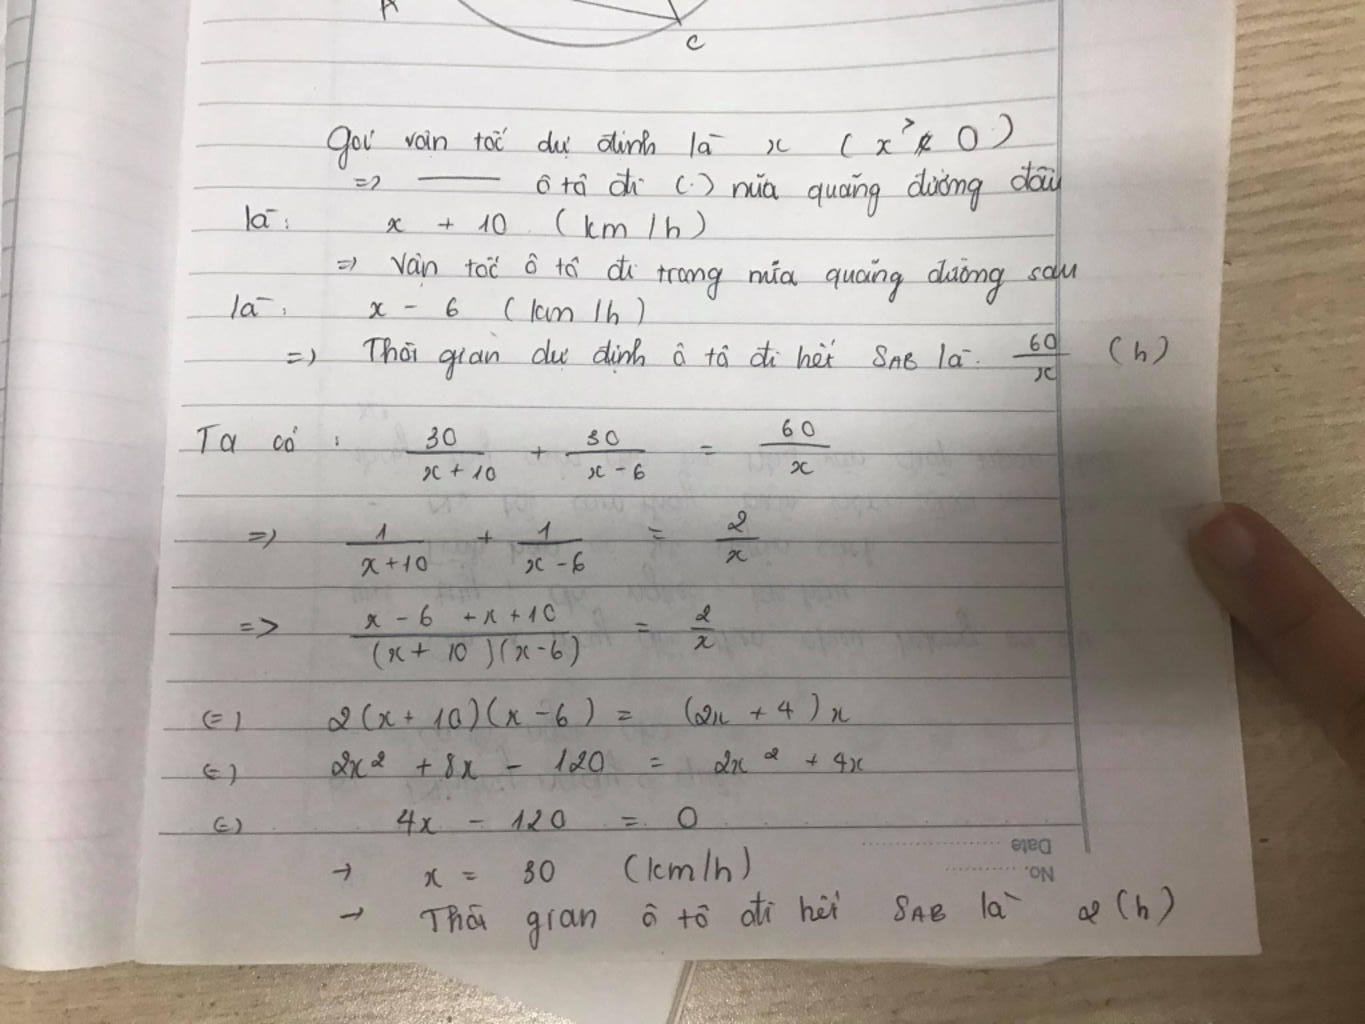 A
C
Gọi vận tốc dự định là x (x > 0)
=> ——— ô tô đi (.) nửa quãng đường đầu
là: x + 10 (km/h)
=> Vận tốc ô tô đi trong nửa quãng đường sau
là: x - 6 (km/h)
=> Thời gian dự định ô tô đi hết SAB là: 60/x (h)
Ta có: 30/(x + 10) + 30/(x - 6) = 60/x
=> 1/(x+10) + 1/(x - 6) = 2/x
=> (x - 6 + x + 10)/((x + 10)(x - 6)) = 2/x
(=) 2(x + 10)(x - 6) = (2x + 4)x
(=) 2x² + 8x - 120 = 2x² + 4x
(=) 4x - 120 = 0
Date
→ x = 30 (km/h)
No.
→ Thời gian ô tô đi hết SAB là 2 (h)